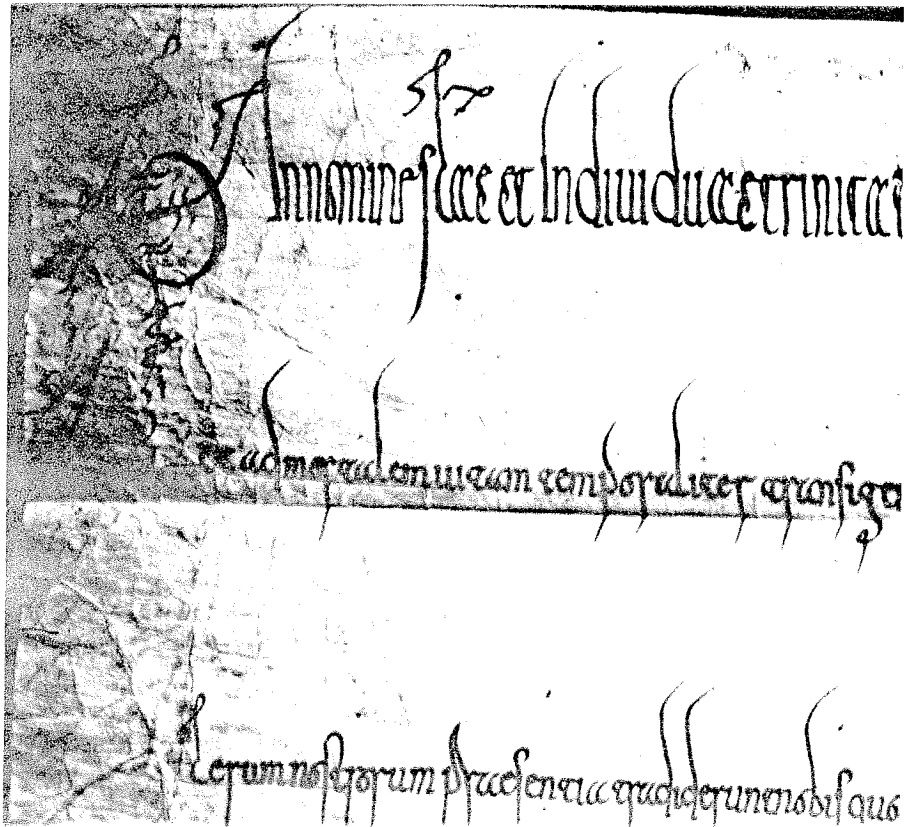 In nomine scae et indiuiduae trinitat
et ad mortalem uitam temporaliter transige
nostrorum praesentia tradiderunt nobis quos